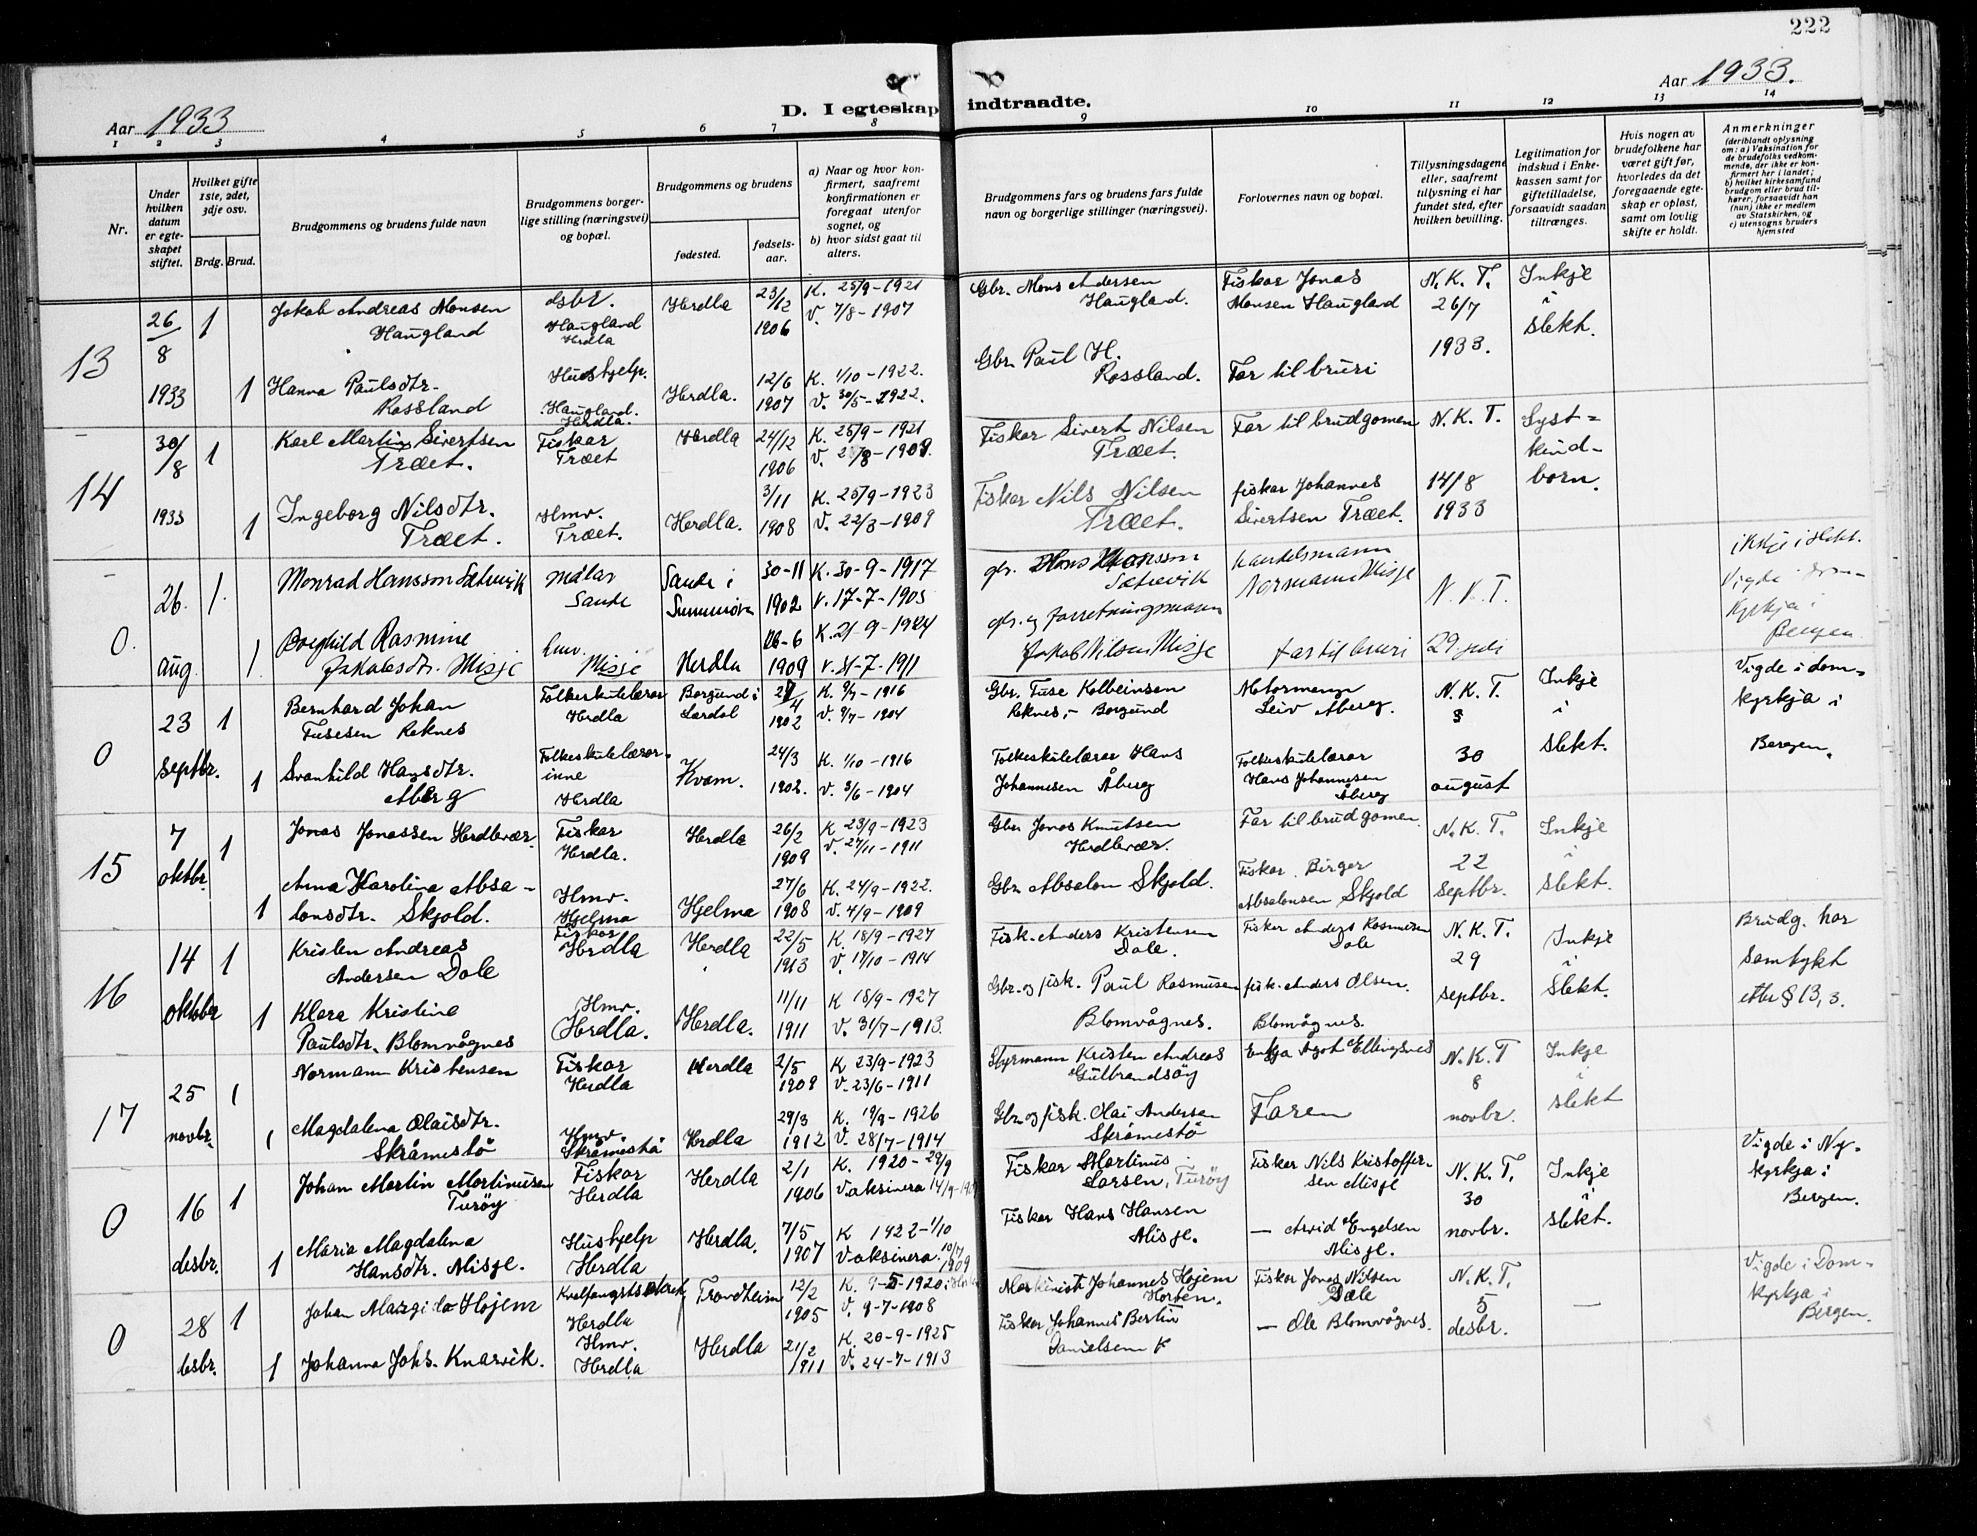 222
Aar 1933
D. I egteskap indtraadte.
Aar 1933.
1 2 3 4 5 6 7 8 9 10 11 12 13 14
Nr.
Under hvilken datum er egteskapet stiftet.
Hvilket gifte 1ste, 2det, 3dje osv.
Brdg. Brud.
Brudgommens og brudens fulde navn
Brudgommens borgerlige stilling (næringsvei) og bopæl.
Brudgommens og brudens
fødested.
fødselsaar.
a) Naar og hvor konfirmert, saafremt konfirmationen er foregaat utenfor sognet, og
b) hvor sidst gaat til alters.
Brudgommens fars og brudens fars fulde navn og borgerlige stillinger (næringsvei).
Forlovernes navn og bopæl.
Tillysningsdagene eller, saafremt tillysning ei har fundet sted, efter hvilken bevilling.
Legitimation for indskud i Enkekassen samt for giftetilladelse, forsaavidt saadan tiltrænges.
Hvis nogen av brudefolkene har været gift før, hvorledes da det foregaaende egteskap er opløst, samt om lovlig skifte er holdt.
Anmerkninger
(deriblandt oplysning om: a) Vaksination for de brudefolks vedkommende, der ikke er konfirmert her i landet; b) hvilket kirkesamfund brudgom eller brud tilhører, forsaavidt han (hun) ikke er medlem av Statskirken, og c) utensogns bruders hjemsted
13
26/8 1933
1 Jakob Andreas Monsen Haugland
Haugland Herdla
Herdla
23/12 1906
K. 25/9-1921
V. 7/8-1907
Gbr. Mons Andersen Haugland.
Fiskar Jonas Monsen Haugland
N. K. T. 26/7 1933.
Inkje i slekt.
1 Hanna Paulsdtr. Rossland
Hushjelp. Haugland. Herdla.
Herdla.
12/6 1907
K. 1/10-1922.
V. 30/5-1922.
Gbr. Paul H. Rossland.
Far til bruri
14
30/8 1933
1 Karl Martin Sivertsen Træet.
Fiskar Træet
Herdla
24/12 1906
K. 25/9-1921
Fiskar Sivert Nilsen Træet.
Far til brudgomen
N. K. T. 14/8 1933
Systkindborn.
1 Ingeborg Nilsdtr. Træet.
Hmv. Træet.
Herdla.
3/11 1908
K. 25/9-1923
V. 22/3-1909
Fiskar Nils Nilsen Træet.
fiskar Johannes Sivertsen Træet.
0.
26. aug.
1. Monrad Hansson Sætrevik
målar Sande
Sande i Sunnmøre
30-11 1902
K. 30-9-1917
V. 17-7-1905
gbr. Hans Hansson Sætrevik
handelsmann Normann Misje
N. K. T. 29. juli
ikkje i slekt.
Vigde i domkyrkja i Bergen.
1. Borghild Rasmine Jakobsdtr. Misje
hmv. Misje
Herdla
26-6 1909
K. 21-9-1924
V. 31-7-1911
gbr. og forretningsmann Jakob Nilsen Misje
far til bruri
0
23 septbr.
1 Bernhard Johan Tusesen Reknes
Folkeskulelærar Herdla
Borgund i Lærdal
1902
K. 9/7-1916
V. 9/7-1904
Gbr. Tuse Kolbeinsen Reknes,- Borgund
Motormann Leiv Aberg.
N. K. T. 30 august
Inkje i slekt.
Vigde i domkyrkja i Bergen.
1 Svanhild Hansdtr. Aberg
Folkeskulelærarinne Herdla
Kvam.
24/3 1902.
K. 1/10-1916
V. 3/6-1904
Folkeskulelærar Hans Johannesen Åberg
Folkeskulelærar Hans Johannesen Åberg
15
7 oktbr.
1 Jonas Jonassen Herdlevær.
Fiskar Herdla.
Herdla
26/2 1909
K 23/9-1923
V. 27/11-1911
Gbr. Jonas Knutsen Herdlevær.
Far til brudgomen.
N. K. T. 22 septbr.
Inkje i slekt.
1 Anna Karolina Absalonsdtr. Skjold.
Hmv. Hjelma
Hjelma
27/6 1908
K. 24/9-1922.
V. 4/9-1909
Gbr Absalon Skjold.
Fiskar Birger Absalonsen Skjold
16
14 oktbr
1 Kristen Andreas Andersen Dale
Fiskar Herdla
Herdla
22/5 1913
K. 18/9-1927
V. 17/10-1914
Fisk. Anders Kristensen Dale.
Fisker Anders Rasmusen Dale
N. K. T. 29 septbr.
Inkje i slekt.
Brudg. har samtykt etter § 13, 3.
1 Klara Kristine Paulsdtr. Blomvågnes
Hmv. Herdla.
Herdla.
11/11 1911
K 18/9-1927
V. 31/7-1913.
Gbr. og fisk. Paul Rasmusen Blomvågnes.
fisk. Anders Olsen. Blomvågnes.
17
25 novbr.
1 Normann Kristensen
Fiskar Herdla
Herdla
2/5 1908
K 23/9-1923
V. 23/6-1911
Styrmann Kristen Andreas Gulbrandsøy
Enkja Agot Ellingsnes
N. K. T 8 novbr.
Inkje i slekt
1 Magdalena Olaisdtr. Skråmestø
Hmv. Skråmestø
Herdla
29/3 1912
K. 19/9-1926
V. 28/7-1914
Gbr. og fisk. Olai Andersen Skråmestø
Faren
0
16 desbr.
1 Johan Martin Martinusen Turøy
Fiskar Herdla
Herdla
2/1 1906
K. 1920-29/9
Vaksinera 14/9
Fiskar Martinus Larsen, Turøy
Fiskar Nils Kristoffersen Misje
N. K. T. 30 novbr.
Inkje i slekt.
Vigde i Nykyrkja i Bergen.
1 Maria Magdalena Hansdtr. Misje.
Hushjelp Herdla
Herdla.
7/5 1907
K 1922-1/10
Vaksinera 10/7 1909
Fiskar Hans Hansen Misje.
— Arvid Engelsen Misje.
0
28 desbr.
1 Johan Højem
Herdla
Trondheim
12/2 1905
K. 9-5-1920
V. 9-7-1908
Maskinist Johannes Højem Horten.
Fiskar Jonas Nilsen Dale
N. K. T. 5 desbr.
—
Vigde i Domkyrkja i Bergen.
1 Johanna Johs. Knarvik.
Hmv. Herdla
Herdla
21/2 1911
K. 20-9-1925
V. 24-7-1913
Fiskar Johannes Bertin Danielsen K
— Ole Blomvågnes.